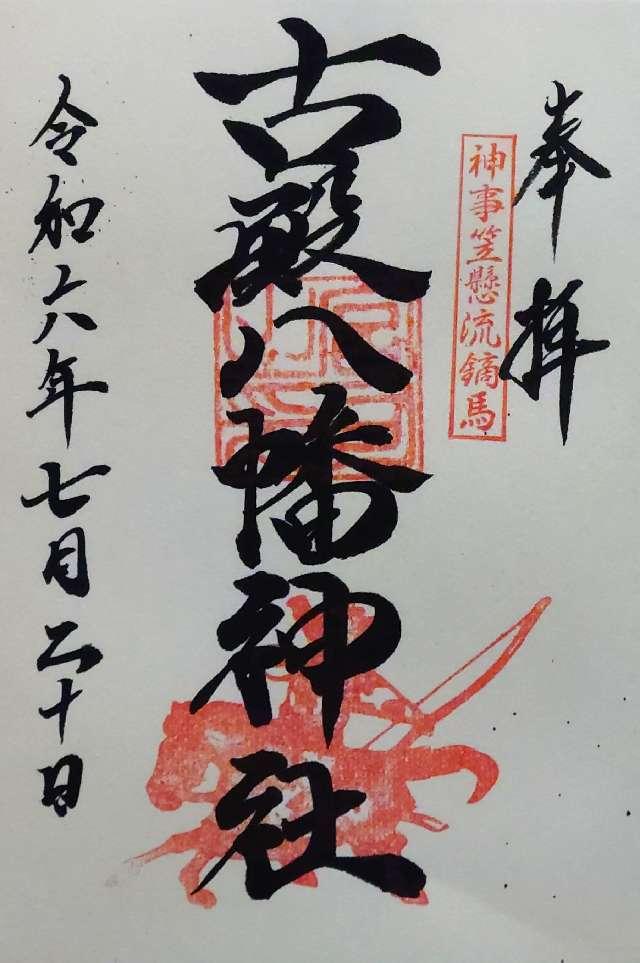 奉拝
神事笠懸流鏑馬
古殿八幡神社
令和六年七月二十日